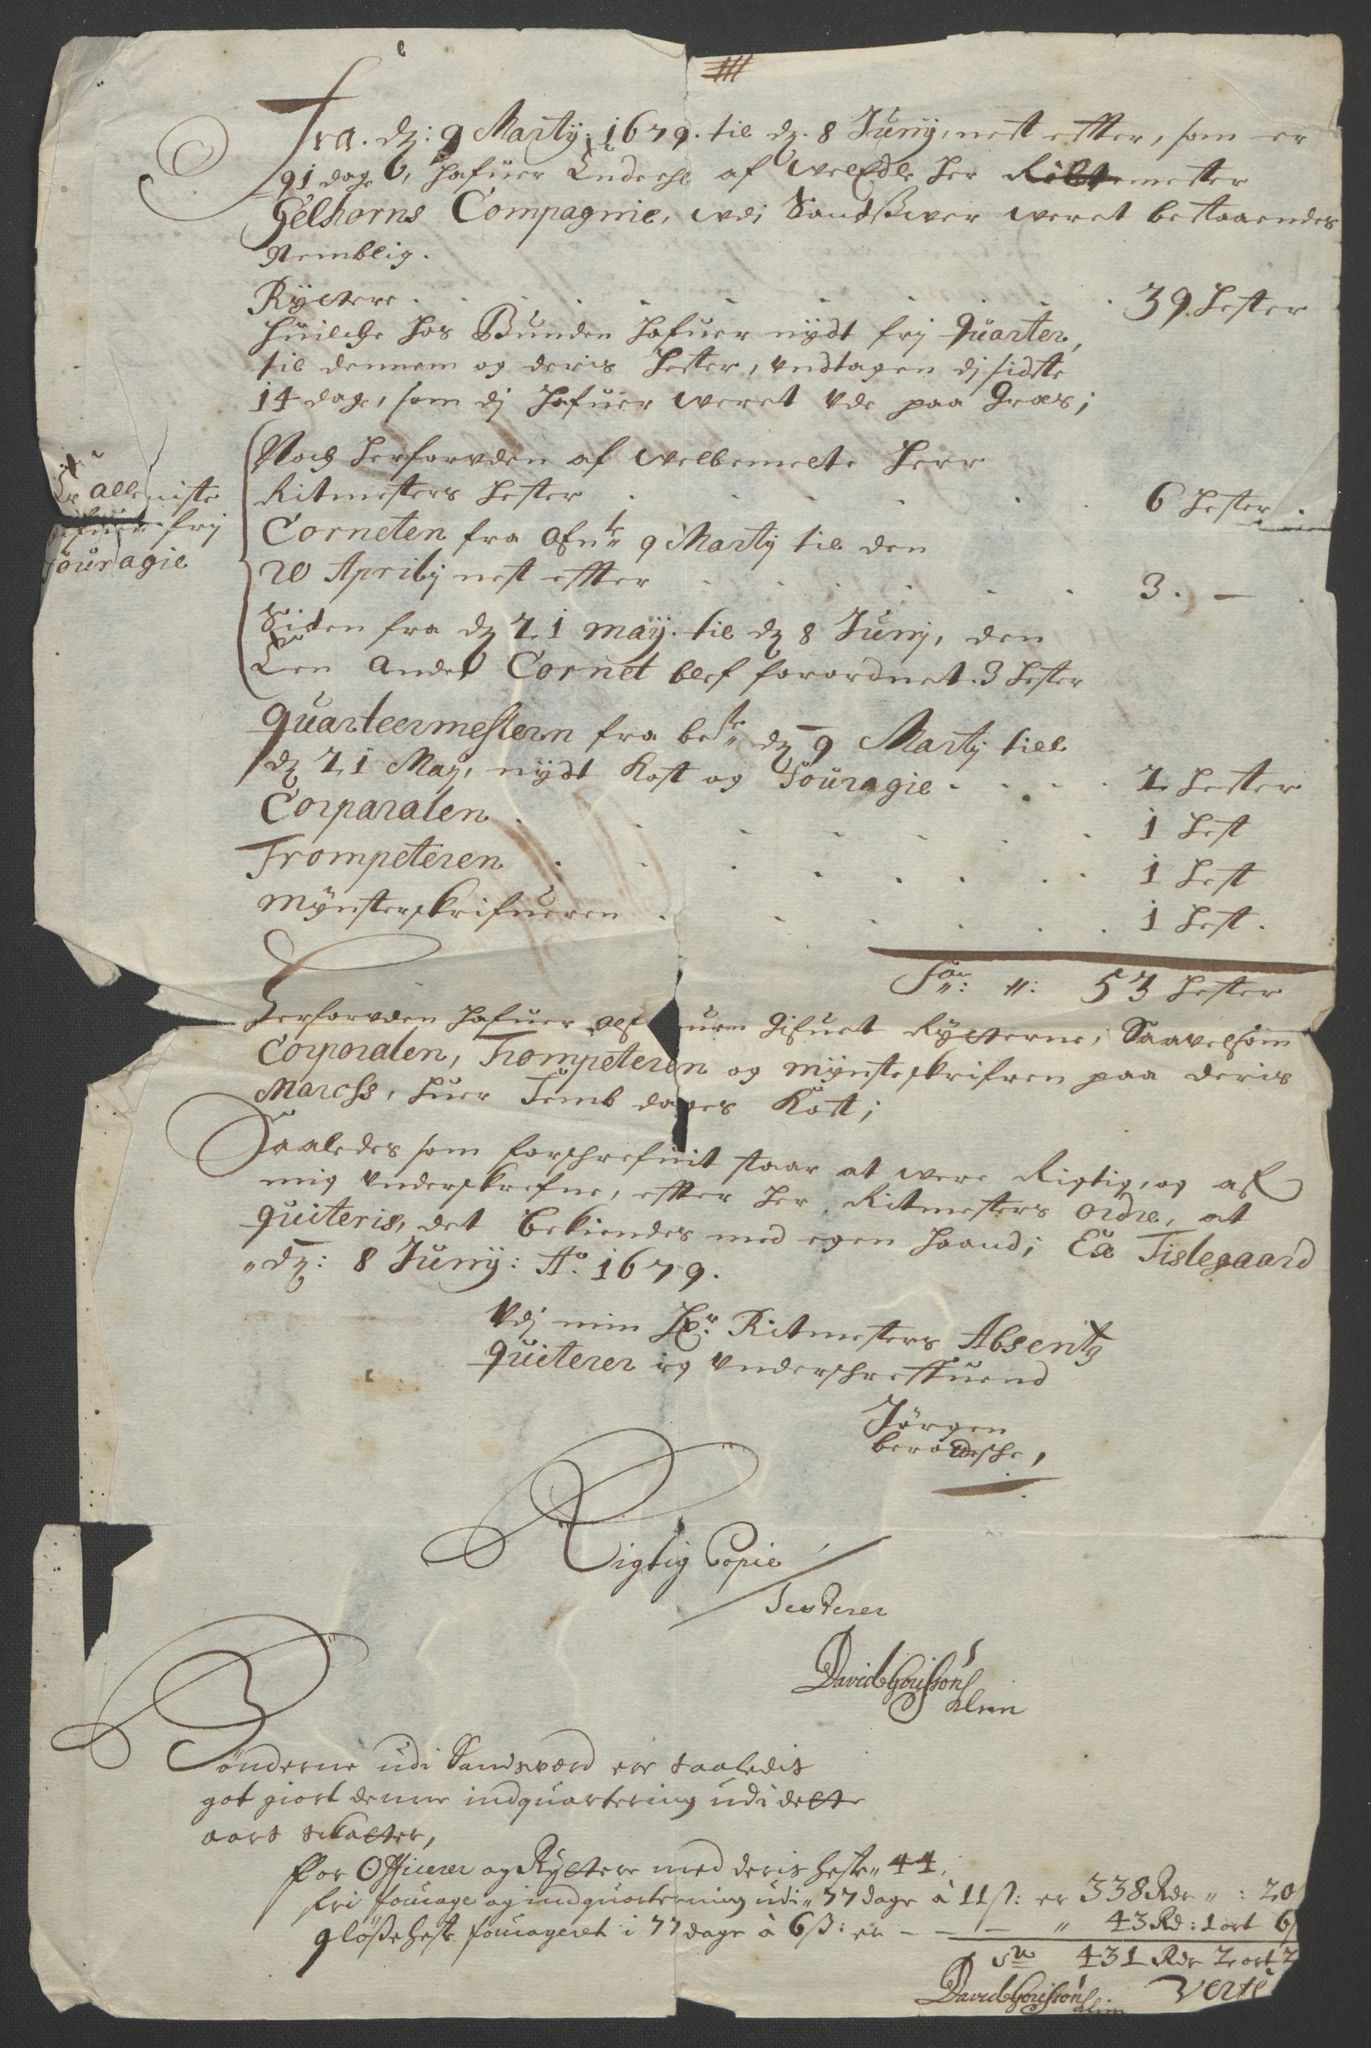 Fra. dz: 9 Martij. 1679. til dz. 8 Junij, nest effter, som er
91 dage, hafuer af Welædle Her Ritmester
Gelhorns Compagnie, udi Sandsswer weret bestaaendes
Nemblig.
Ryttere . . . . . . . . 39. Hester
Huilche hos Bunden hafuer nydt frij Quarter,
til dennem og deris Hester, undtagen dj sidste
14 dage, som dj hafuer weret ude paa Græs;
Noch herforuden af welbemelte Herr
Ritmesters Hester . . . . . . 6 Hester .
Er alleniste
gifuen frij
Fouragie
Corneten fra 9 Martij til den
20 Aprilij nest effter . . . . . . 3. — .
Siden fra dz 21 maij. til dz 8 Junij, den
Een Andet Cornet blef forordnet. 3 Hester
Quarteermestern fra dz 9 Martij till
dz 21 Maij, nydt Kost og Fouragie . . . . 2 Hester
Corparalen . . . . . 1 Hest
Trompeteren . . . . . . . 1 Hest
Mynsterskrifueren . . . . . . 1 Hest.
Sa: 53 Hester
Herforuden hafuer gifuet Rytterne, Saavelsom
Corporalen, Trompeteren og mynsteskrifren paa deris
March, huer Femb dages Kost;
Saaledes som forschrefuit staar at were Rigtig, og af
mig underskrefne, effter Her Ritmesters ordre, at
quiteris, det bekiendes med egen Haand; Ex Fislegaard
dz: 8 Junij: Ao. 1679.
Udj min Hr: Ritmesters Absentz
quiterer og underschreffuend
Jørgen

Rigtig Copie
Testerer
David Görissön

Bønderne udi Sandsværd ere saaledis
got giort denne indquartering udi dette
aars skatter,
for Officerer og Ryttere med deris heste 44.
fri fourage og indquartering udi 77 dage à 11 ß: er 338 Rdr : 20
9 løße heste fourageret i 77 dage à 6 ß: er — — — 43 Rd: 1 ort 6
431 Rdr 2 ort 2
David Görissön
Verte